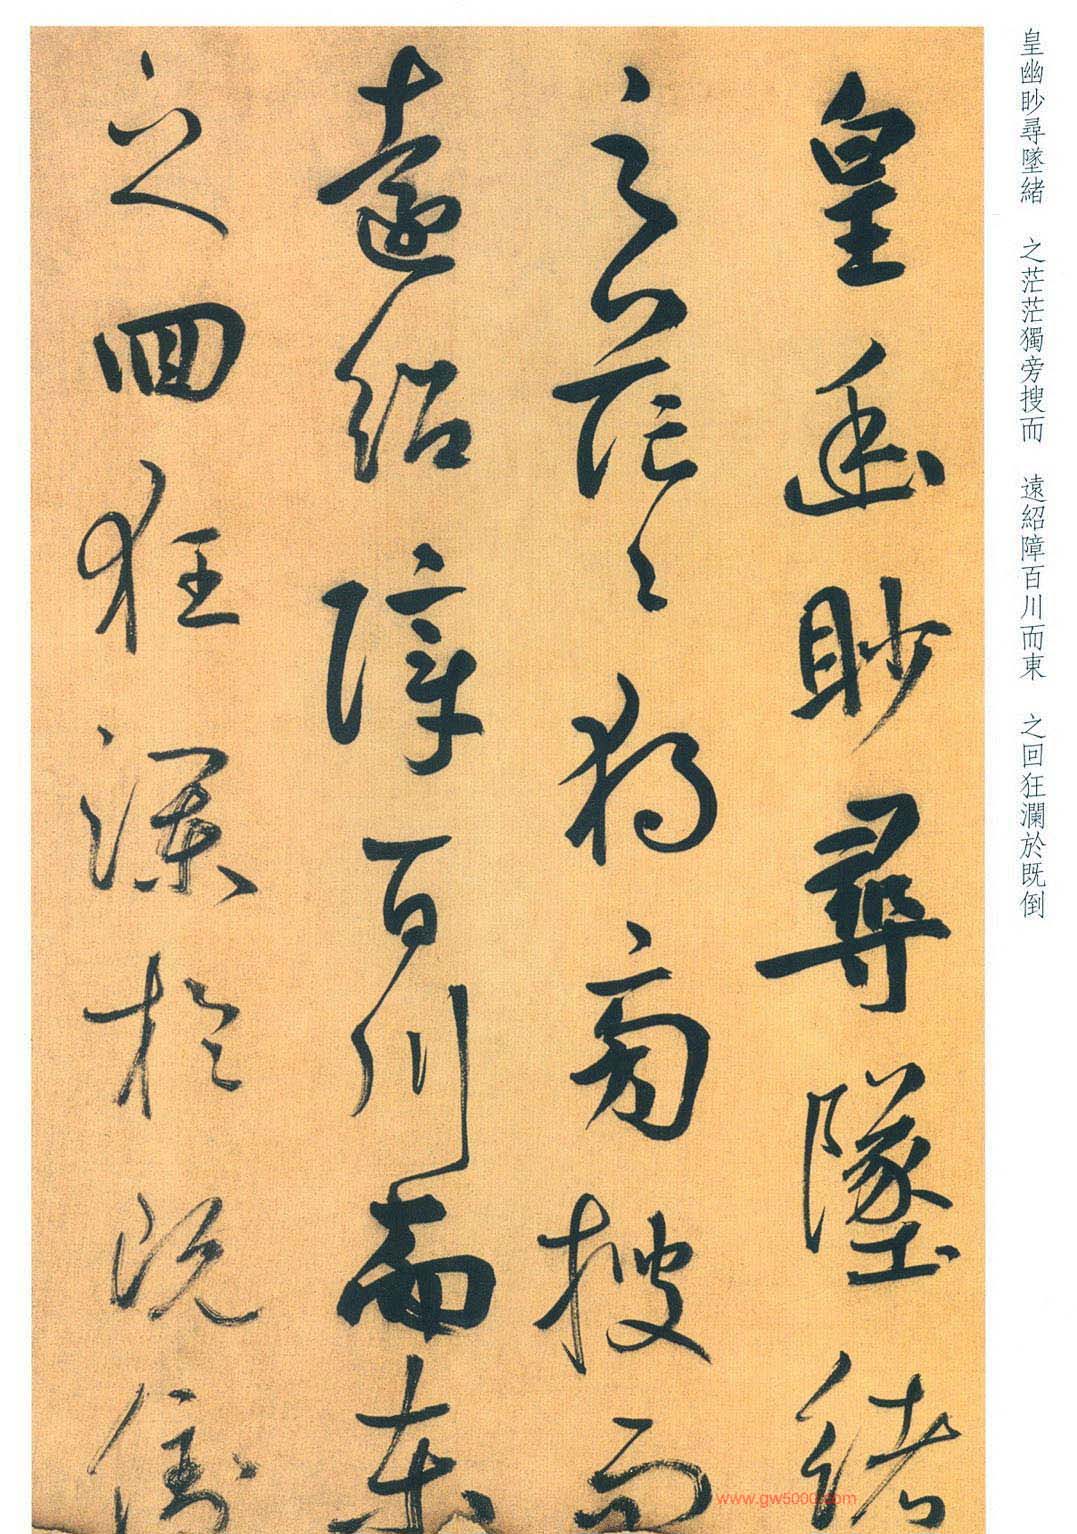 皇幽眇尋墜緒
之茫茫獨旁搜而
遠紹障百川而東
之回狂瀾於既倒
皇幽眇尋墜緒　之茫茫獨旁搜而　遠紹障百川而東　之回狂瀾於既倒
www.gw5000.com